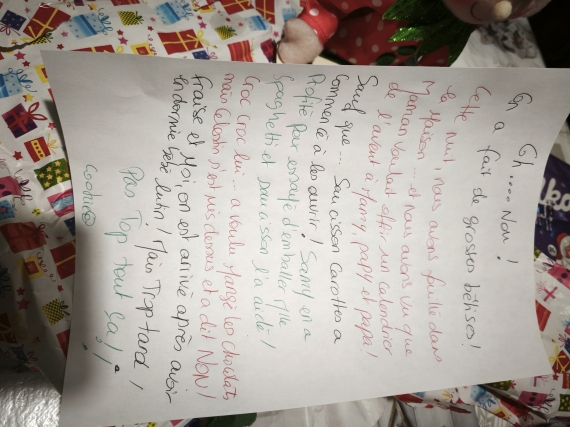 Oh.... Non!
On a fait de grosses bêtises!
Cette nuit nous avons fouillé dans
la maison... et nous avons vu que
Maman voulait offrir un calendrier
de l'avent à Mamy, papy et papa!
Sauf que... Sauasson Carottes a
commencé à les ouvrir! Samy en a
Profité pour essayé d'emballer Mlle
Spaghetti et Sauasson l'a aidé!
Croc Croc lui... a voulu mangé les chocolats
mais Celestin s'est mis dessus et a dit NON!
Fraise et Moi, on est arrivé après avoir
endormie bébé lutin! Mais Trop tard!
Pas Top tout ça!!
Cookies